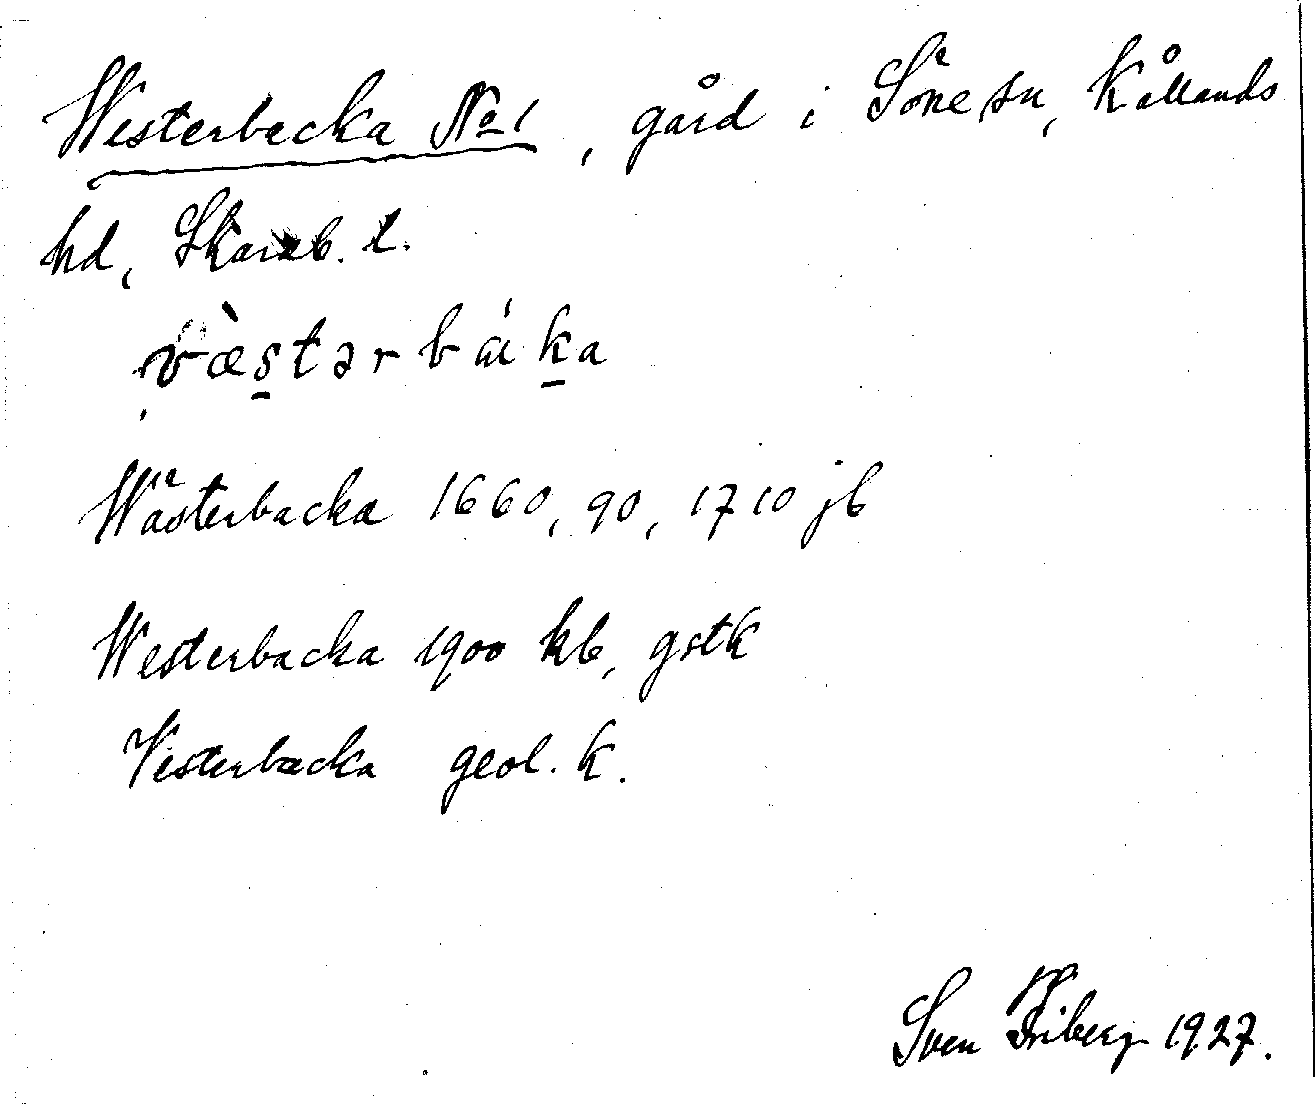 Westerbacka No 1, gård i Söne sn, Kållands
hd, Skarab. l.
væ̀stərbáka
Wästerbacka 1660, 90, 1710 jb
Westerbacka 1900 kb, gstk
Vesterbacka geol. k.
Sven Friberg 1927.